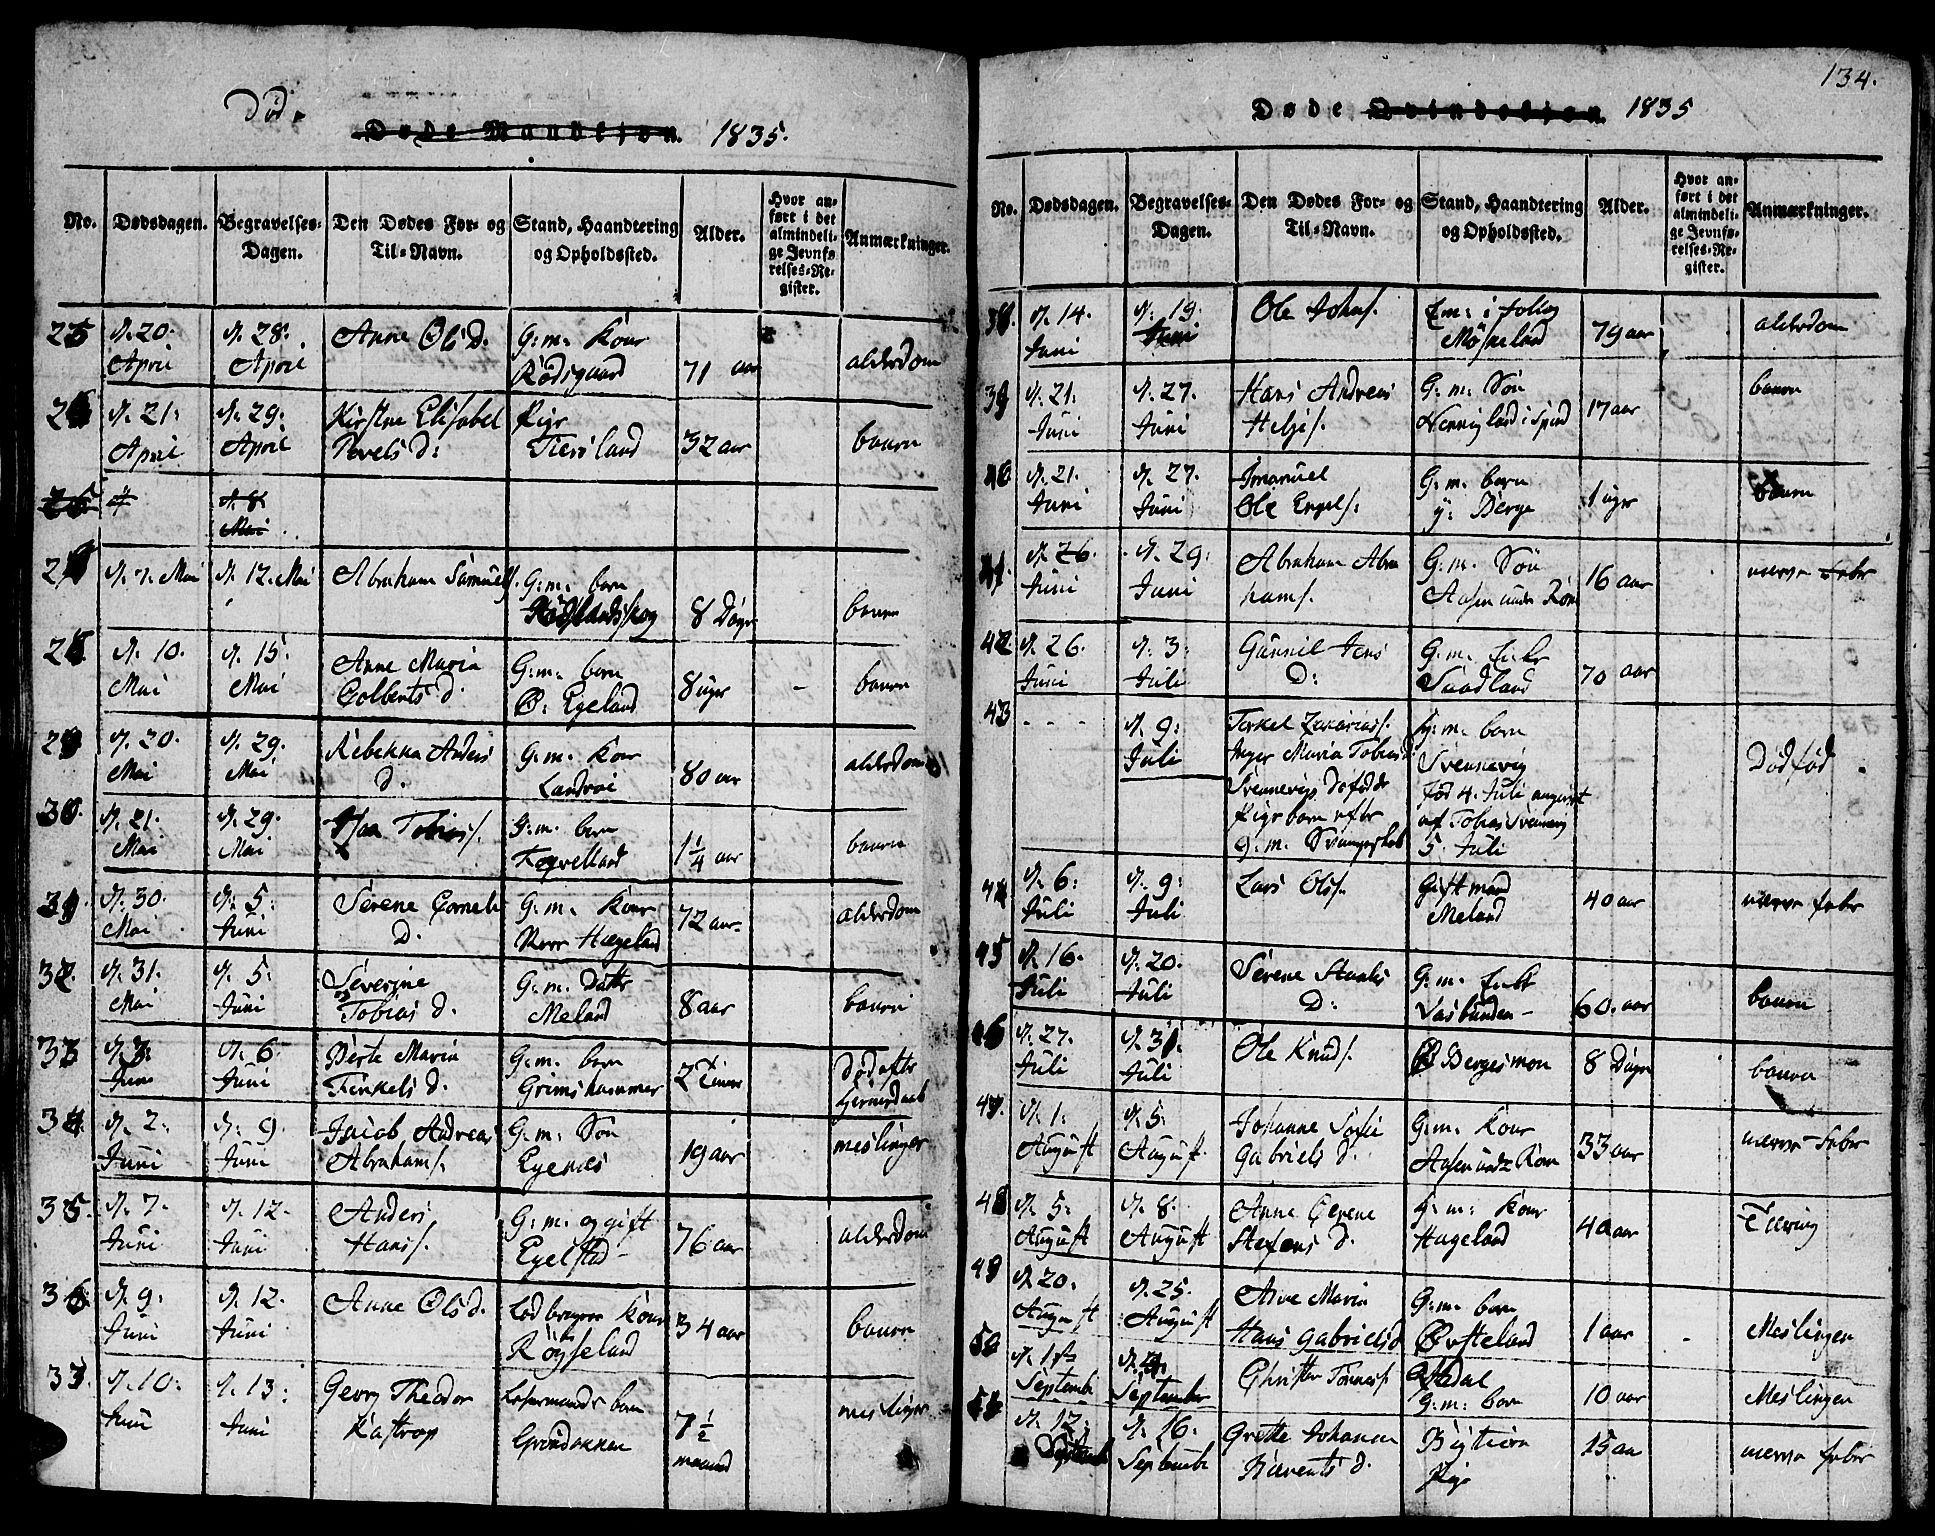 Død.
Døde Mandkjøn. 1835.
No.
Dødsdagen.
Begravelses-Dagen.
Den Dødes For- og Til-Navn.
Stand, Haandtering og Opholdssted.
Alder.
Hvor anført i det almindelige Jevnførelses-Register.
Anmærkninger.
25 d. 20. April d. 28. April Anne Ols d. G: m: Kone Rødsgaard 71 aar alderdom
26 d. 21. April d. 29. April Kirstne Elisabet Povels d: Pige Tiersland 32 aar
26 d. d. 8. Mai
27 d. 7. Mai d. 12. Mai Abraham Samuels. G: m: barn 8 Dage
28 d. 10. Mai d. 15. Mai Anne Maria Colbents d. G: m: barn Ø: Egeland 8 uger
29 d. 20. Mai d. 29. Mai Rebekka Anders d. G: m: Kone Landvoi 80 aar alderdom
30. d. 21. Mai d. 29. Mai Tobias. G: m: barn 1 1/4 aar
31. d. 30. Mai d. 5. Juni Serene Corneli D. G: m: Kone Hægeland 72 aar alderdom
32. d. 31. Mai d. 5. Juni Severine Tobias d. G: m: Datter Meland 8 aar
33 d. 3. Juni d. 6. Juni Berte Maria Terkels d. G: m: barn Grimshammer 2 Timer Død efter hiemedaab
34 d. 2. Juni d. 9. Juni Jacob Andreas Abrahams. G: m: Søn Egenes 19 aar meslinger
35. d. 7. Juni d. 12. Juni Anders Hans. G: m: og gift Egelstad 76 aar alderdom
36 d. 9. Juni d. 12. Juni Anne Ols d. Kone Røyseland 34 aar
37. d. 10. Juni d. 13. Juni Georg Theodor Kastrop barn Grøndokken 7 1/2 maaned meslinger
134.
Døde Qvindekjøn. 1835
No.
Dødsdagen.
Begravelses-Dagen.
Den Dødes For- og Til-Navn.
Stand, Haandtering og Opholdssted.
Alder.
Hvor anført i det almindelige Jevnførelses-Register.
Anmærkninger.
38. d. 14. Juni d. 19. Juni Ole Johns. Em: i Møskeland 79 aar alderdom
39 d. 21. Juni d. 27. Juni Hans Andreas Heljes. G: m: Søn i Spind 17 aar
40 d. 21. Juni d. 27. Juni Imanuel Ole Engels. G: m: barn y: Berge 1 uge
41. d. 26. Juni d. 29. Juni Abraham Abrahams. G: m: Søn Aasen 16 aar nerve feber
42 d. 26. Juni d. 3. Juli Gunnil Jens D: G: m: enke Saadland 70 aar
43 - - - d. 9. Juli Terkel Zakarias. Inger Maria Tobias d. Svennevigs Pige barn efter 9. m. Svangerskab G: m: barn Svennevig Fød 4. Juli af Tobias Svennevig 5. Juli Død fød
44 d. 6. Juli d. 9. Juli Lars Ols. Gift mand Meland 40 aar nerve feber
45 d. 16. Juli d. 20. Juli Serene D: G: m: enke 60. aar
46 d. 27. Juli d. 31. Juli Ole Knuds. Bergesmon 8 Dage
47. d. 1. August d. 5. August Johanne Sofie Gabriels d. G: m: Kone Aasen 33 aar nerve feber
48 d. 5. August d. 8. August Anne Serene Stefens d. G: m: Kone Hageland 40 aar Tæring
49 d. 20. August d. 25. August Anne Maria Hans Gabriels d G: m: barn Øvsteland 1 aar Meslinger
50 d. 1ste September d. 4. September Christen Tønnes. G: m: barn 10 aar Meslinger
51 d. 12. September d. 16. September Grette Johanne Barents d. Pige 15 aar nerve feber